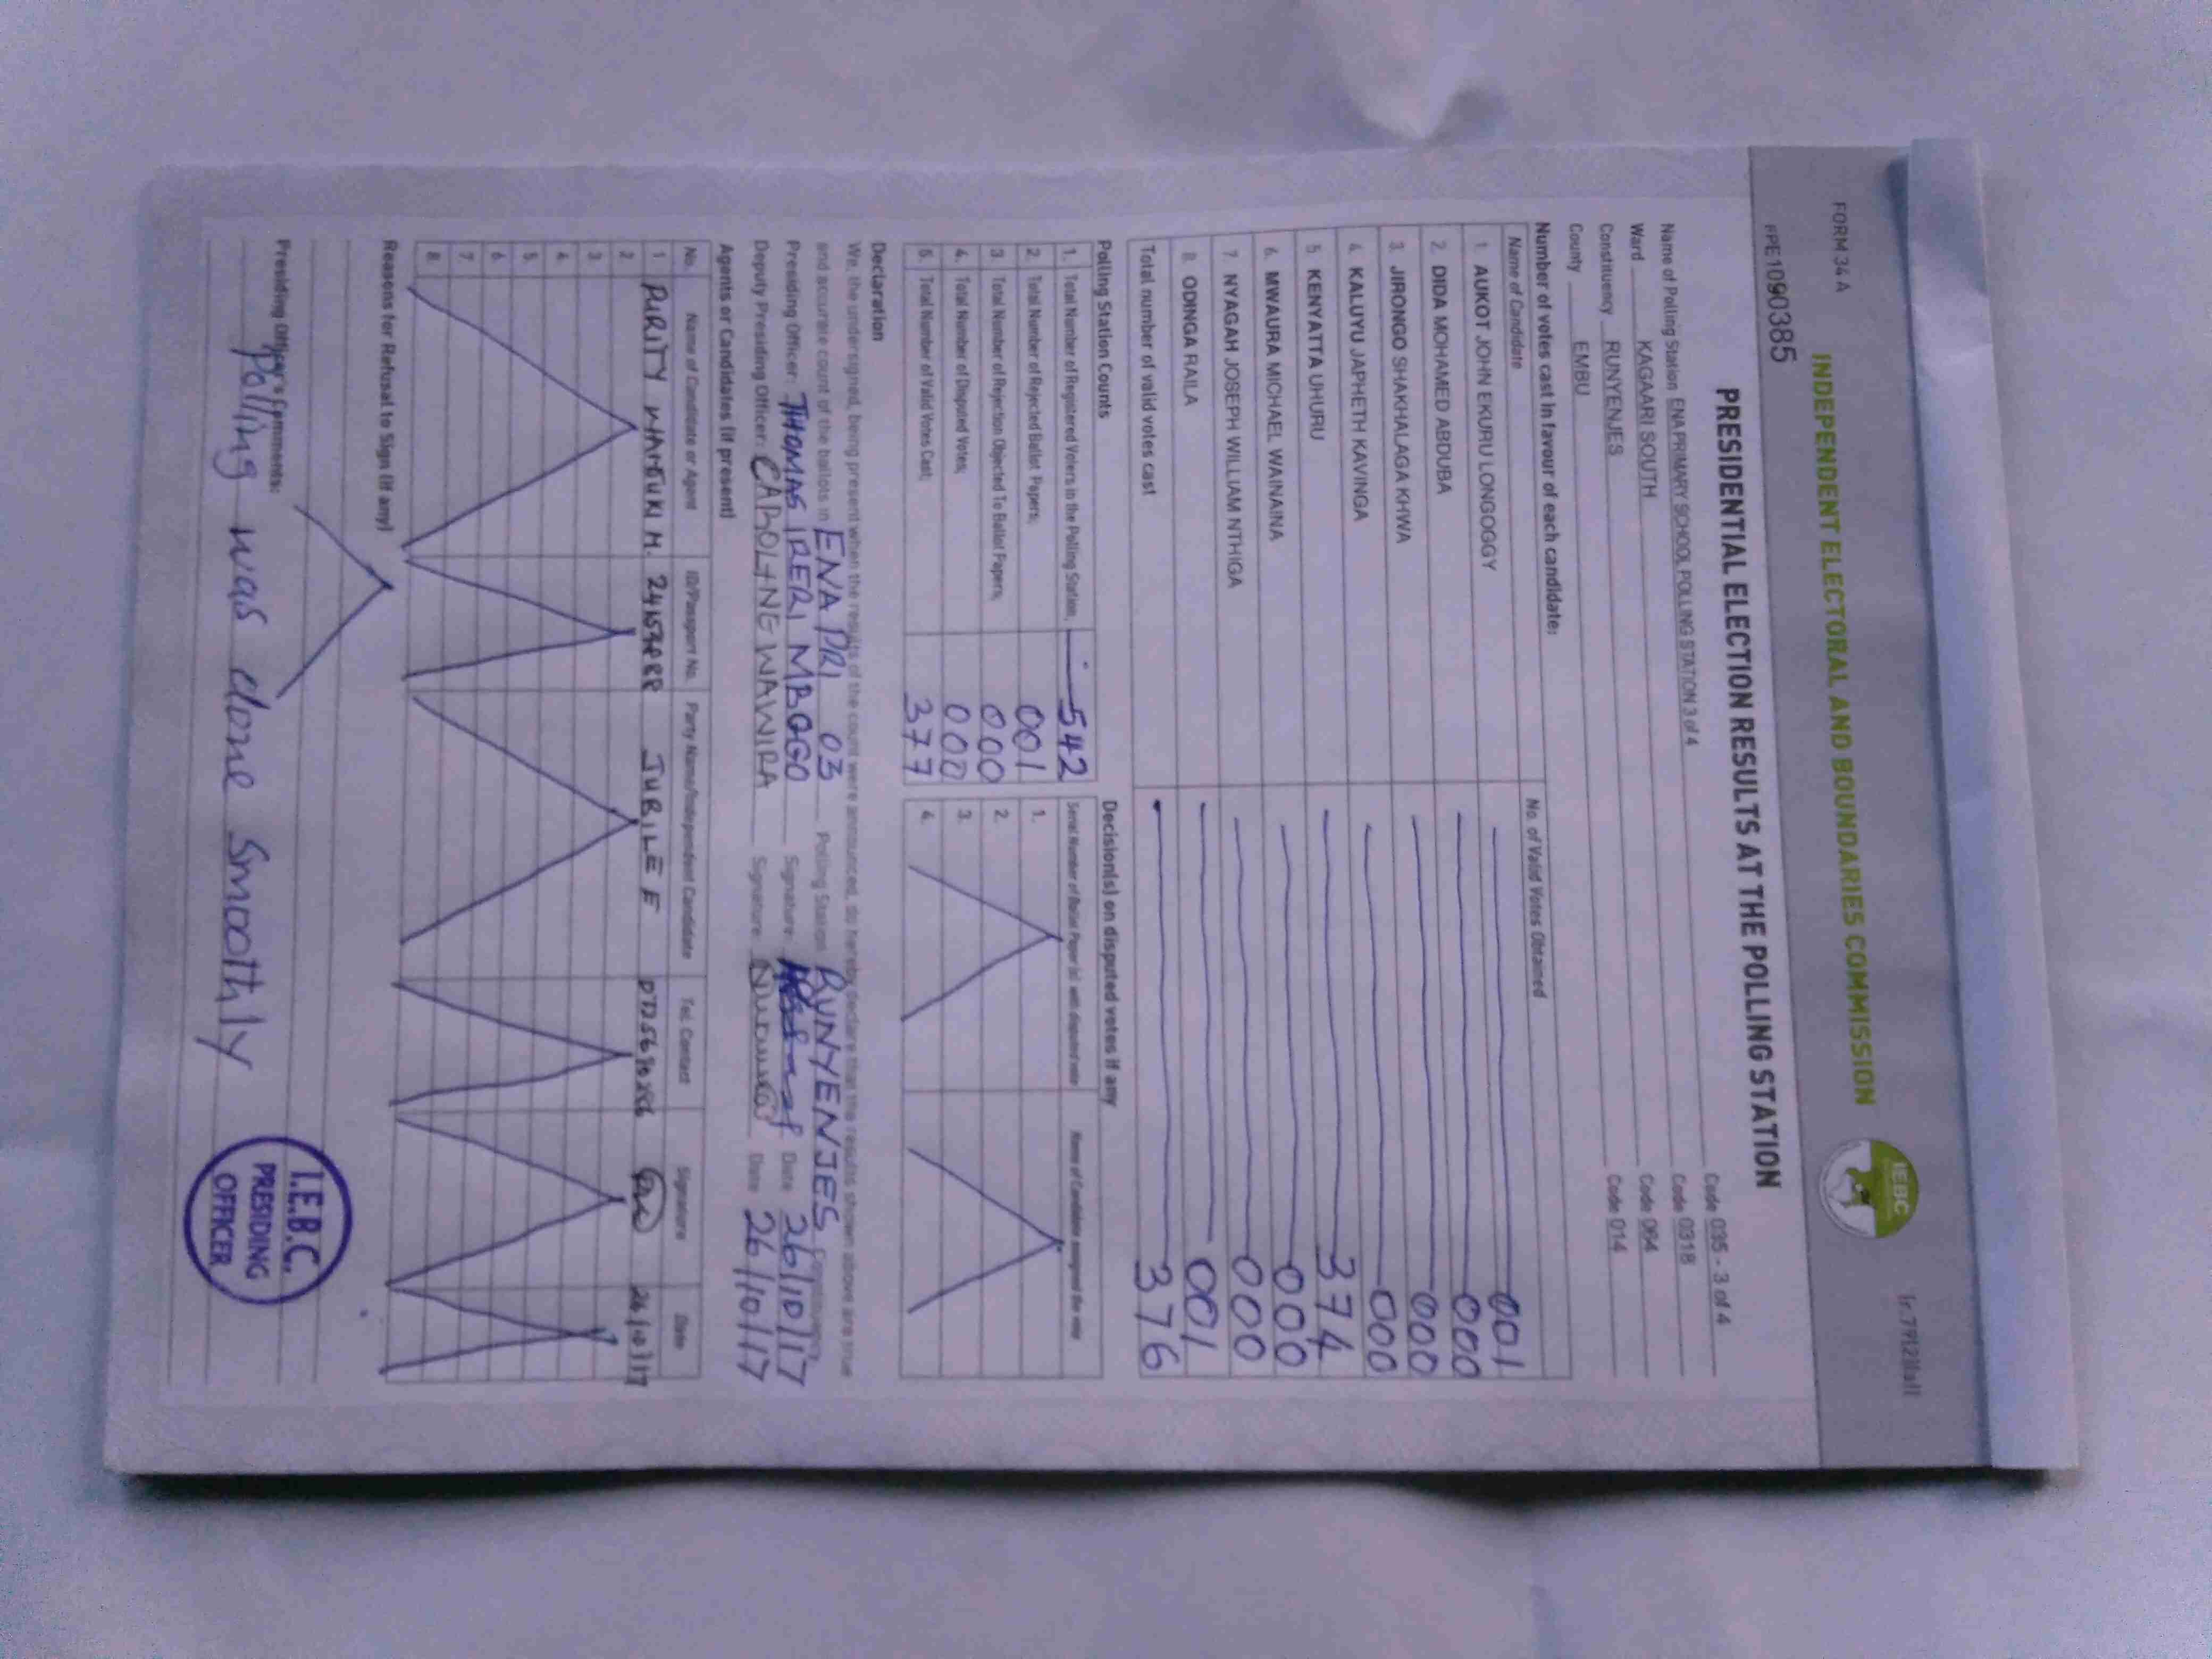 FORM 34A
INDEPENDENT ELECTORAL AND BOUNDARIES COMMISSION
IEBC
PE1090385
PRESIDENTIAL ELECTION RESULTS AT THE POLLING STATION
Name of Polling Station ENA PRIMARY SCHOOL POLLING STATION 3 of 4 Code 035 - 3 of 4
Ward KAGAARI SOUTH Code 0318
Constituency RUNYENJES Code 064
County EMBU Code 014
Number of votes cast in favour of each candidate:
Name of Candidate No. of Valid Votes Obtained
1. AUKOT JOHN EKURU LONGOGGY 001
2. DIDA MOHAMED ABDUBA 000
3. JIRONGO SHAKHALAGA KHWA 000
4. KALUYU JAPHETH KAVINGA 000
5 KENYATTA UHURU 374
6. MWAURA MICHAEL WAINAINA 000
7. NYAGAH JOSEPH WILLIAM NTHIGA 000
8. ODINGA RAILA 001
Total number of valid votes cast 376
Polling Station Counts
1. Total Number of Registered Voters in the Polling Station; 542
2. Total Number of Rejected Ballot Papers; 001
3 Total Number of Rejection Objected To Ballot Papers; 000
4. Total Number of Disputed Votes; 000
5. Total Number of Valid Votes Cast; 377
Decision(s) on disputed votes if any
Serial Number of Ballot Paper (s) with disputed vote Name of Candidate assigned the vote
1.
2.
3.
4.
Declaration
We, the undersigned, being present when the results of the count were announced, do hereby declare that the results shown above are true
and accurate count of the ballots in ENA PRI 03 Polling Station RUNYENJES Constituency.
Presiding Officer: THOMAS IRERI MBOGO Signature: Date 26/10/17
Deputy Presiding Officer: CAROLINE WAWIRA Signature: Date 26/10/17
Agents or Candidates (if present)
No. Name of Candidate or Agent ID/Passport No. Party Name/Independent Candidate Tel. Contact Signature Date
1 PURITY M. JUBILEE 26/10/17
2
3
4
5
6
7
8
Reasons for Refusal to Sign (if any)
Presiding Officer's Comments:
Polling was done smoothly
I.E.B.C.
PRESIDING
OFFICER